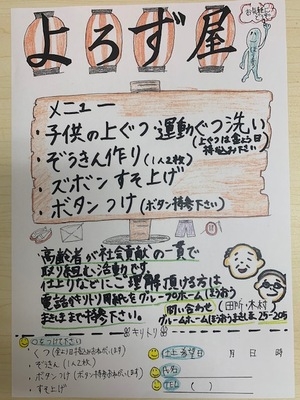 よろず屋
お気軽に
メニュー
・子供の上ぐつ・運動ぐつ洗い
(上ぐつは金よう日
持込み下さい)
・ぞうきん作り(1人2枚)
・ズボンすそ上げ
・ボタンつけ(ボタン持参下さい)
高齢者が社会貢献の一貫で
取り組む活動です。
仕上りなどにご理解頂ける方は
電話やキリトリ用紙をグループホームぼうおう
ままままで持参下さい。
問い合わせ(田所・木村)
グループホームぼうおうまま 25-205
キリトリ
○をつけて下さい
くつ(金よう日持込みおねがいします)
ぞうきん(1人2枚)
ボタンつけ(ボタン持参おねがいします)
すそ上げ
仕上希望日 月 日 時
氏名
TEL ( )